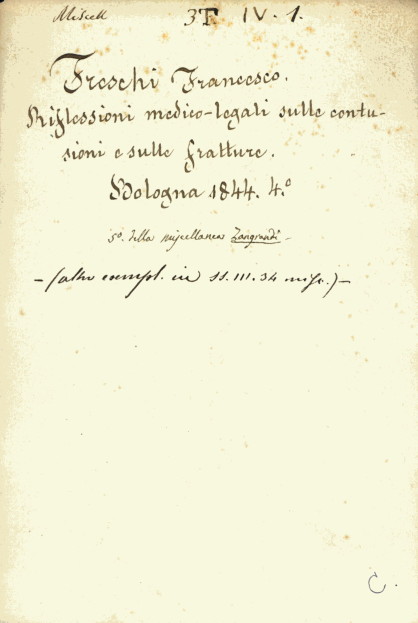 Miscell 3T IV. 1.
Freschi Francesco.
Riflessioni medico-legali sulle contu-
sioni e sulle fratture.
Bologna 1844. 4.°
5°. della miscellanea Zangrandi -
- (altro exempl. in SS. III. 34 misc.) -
C.